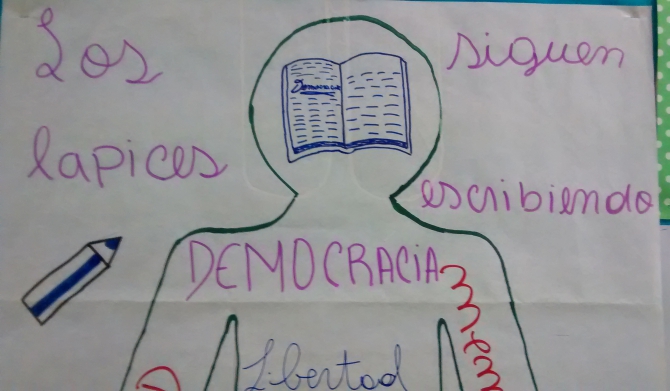 Los siguen
lapices escribiendo
Democracia
DEMOCRACiA
Libertad